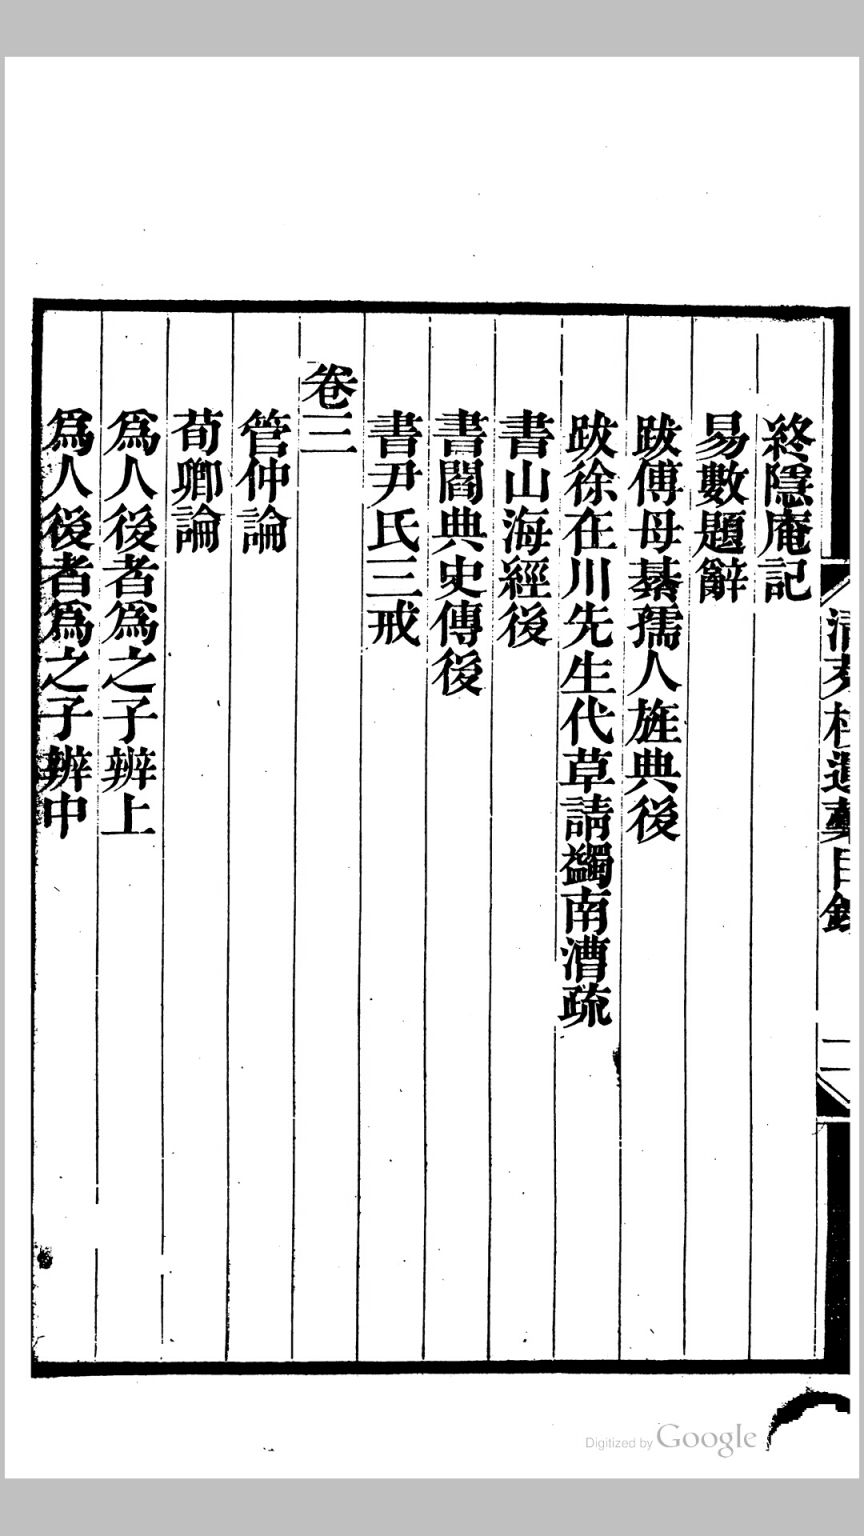 終隱庵記
易數題辭
跋傅母綦孺人旌典後
跋徐在川先生代草請蠲南漕疏
書山海經後
書閻典史傳後
書尹氏三戒
卷三
管仲論
荀卿論
爲人後者爲之子辨上
爲人後者爲之子辨中
遺 目錄
二
Digitized by Google